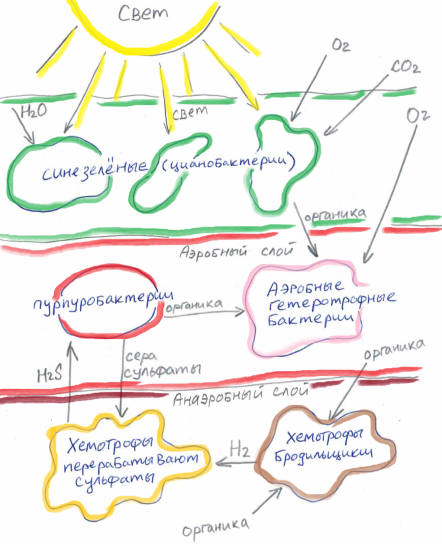 Свет
O2
CO2
O2
H2O
свет
синезелёные (цианобактерии)
органика
Аэробный слой
Пурпуробактерии
органика
Аэробные
гетеротрофные
бактерии
H2S
сера
сульфаты
органика
Анаэробный слой
Хемотрофы
перерабатывают
сульфаты
H2
Хемотрофы
Бродильщики
органика